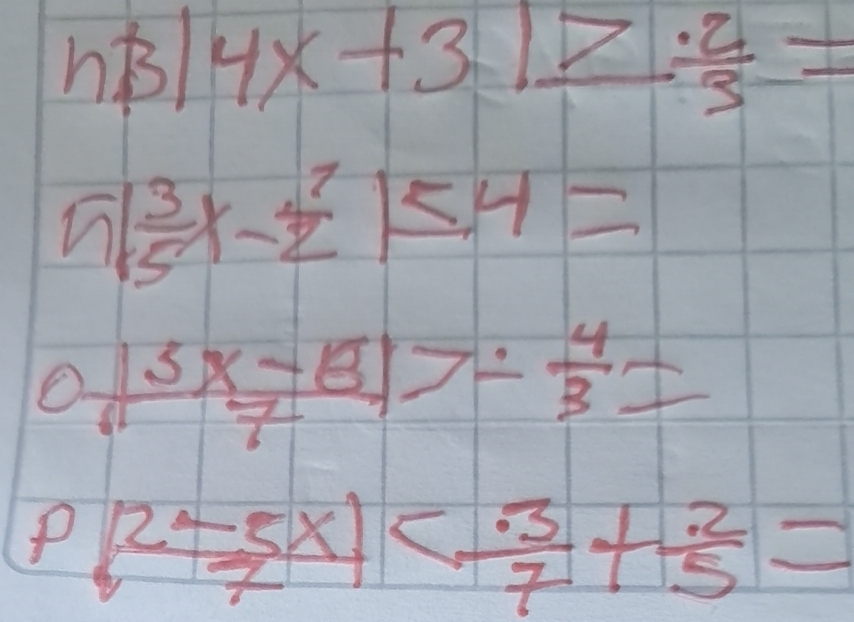 n 3|4x+3| ≥ 2/3 =
ñ |3/5 x - 7/2| ≤ 4 =
o |5x-8 / 7| > ÷ 4/3 =
p |2-5x / 7| < 3/7 + 2/5 =